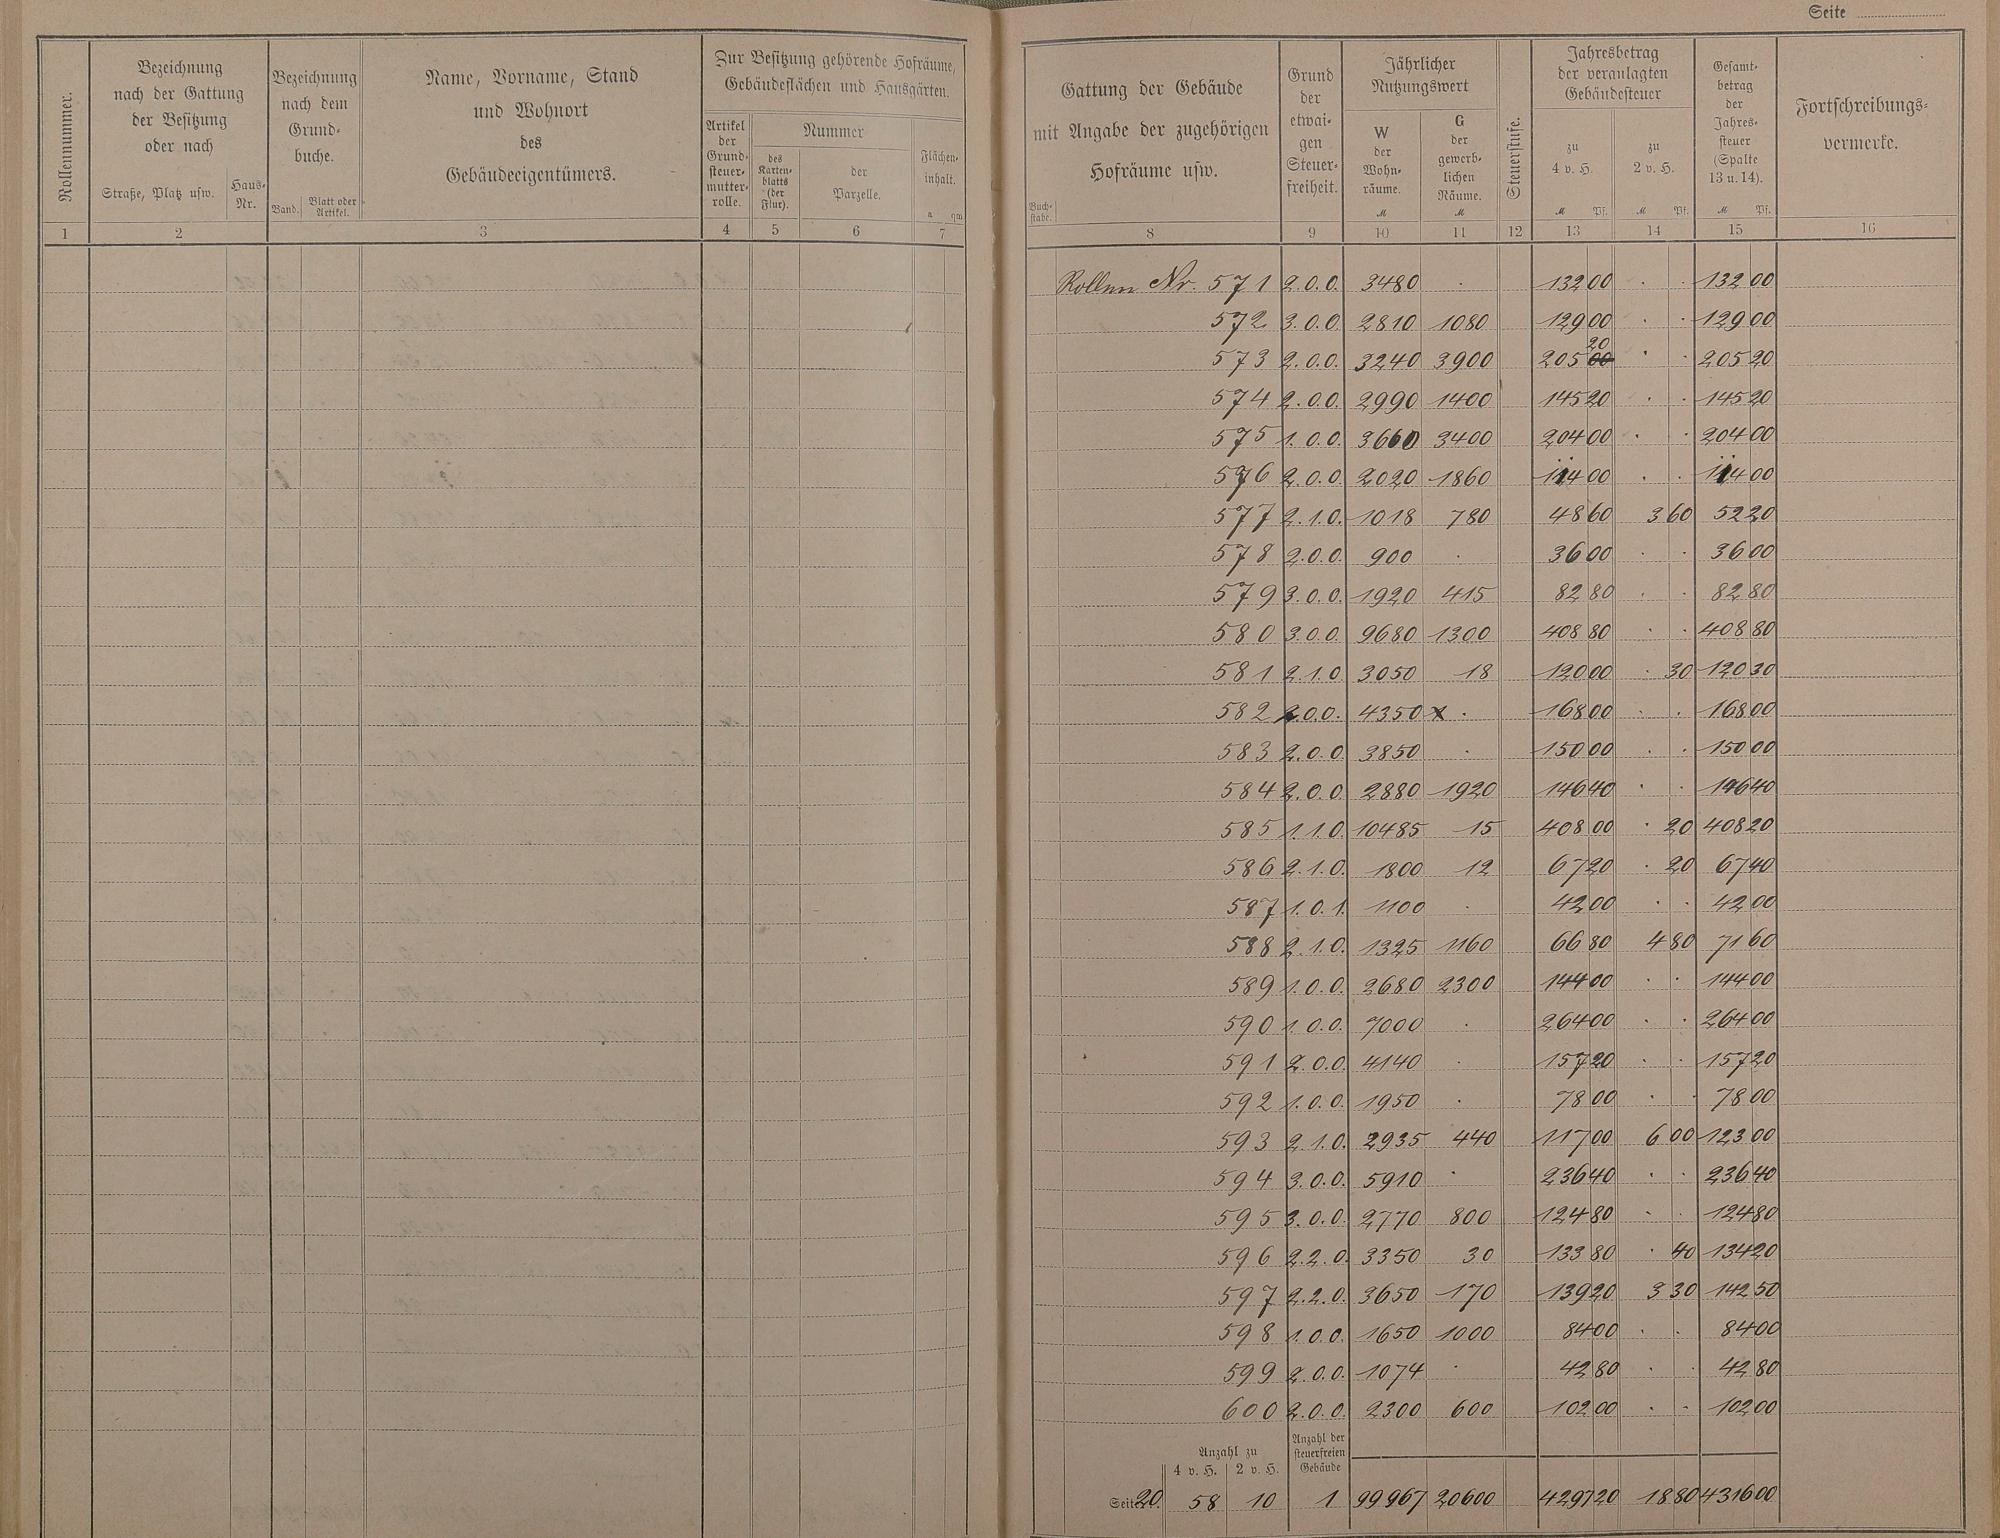 Seite
Rollennummer.
Bezeichnung
nach der Gattung
der Besitzung
oder nach
Straße, Platz usw.
Haus-
Nr.
Bezeichnung
nach dem
Grund-
buche.
Band.
Blatt oder
Artikel.
Name, Vorname, Stand
und Wohnort
des
Gebäudeeigentümers.
Zur Besitzung gehörende Hofräume,
Gebäudeflächen und Hausgärten.
Artikel
der
Grund-
steuer-
mutter-
rolle.
Nummer
des
Karten-
blatts
(der
Flur).
der
Parzelle.
Flächen-
inhalt.
a qm
1 2 3 4 5 6 7
Gattung der Gebäude
mit Angabe der zugehörigen
Hofräume usw.
Buch-
stabe.
Grund
der
etwai-
gen
Steuer-
freiheit.
Jährlicher
Nutzungswert
W
der
Wohn-
räume.
M
G
der
gewerb-
lichen
Räume.
M
Steuerstufe.
Jahresbetrag
der veranlagten
Gebäudesteuer
zu
4 v. H.
M Pf.
zu
2 v. H.
M Pf.
Gesamt-
betrag
der
Jahres-
steuer
(Spalte
13 u. 14).
M Pf.
Fortschreibungs-
vermerke.
8 9 10 11 12 13 14 15 16
Rollen Nr. 571 2.0.0. 3480 . 132 00 . . 132 00
572 3.0.0 2810 1080 129 00 . . 129 00
20
573 2.0.0. 3240 3900 205 00 . . 205 20
574 2.0.0. 2990 1400 145 20 . . 145 20
575 1.0.0. 3660 3400 204 00 . . 204 00
576 2.0.0. 2020 1860 114 00 . . 114 00
577 2.1.0. 1018 780 48 60 3 60 52 20
578 2.0.0. 900 . 36 00 . . 36 00
579 3.0.0. 1920 415 82 80 . . 82 80
580 3.0.0. 9680 1300 408 80 . . 408 80
581 2.1.0 3050 18 120 00 . 30 120 30
582 2.0.0. 4350 x . 168 00 . . 168 00
583 2.0.0. 3850 . 150 00 . . 150 00
584 2.0.0 2880 1920 146 40 . . 146 40
585 1.1.0. 10485 15 408 00 . 20 408 20
586 2.1.0. 1800 12 67 20 . 20 67 40
587 1.0.1. 1100 . 42 00 . . 42 00
588 2.1.0. 1325 1160 66 80 4 80 71 60
589 1.0.0. 2680 2300 144 00 . . 144 00
590 1.0.0. 7000 . 264 00 . . 264 00
591 2.0.0. 4140 . 157 20 . . 157 20
592 1.0.0. 1950 . 78 00 . . 78 00
593 2.1.0. 2935 440 117 00 6 00 123 00
594 3.0.0. 5910 . 236 40 . . 236 40
595 3.0.0. 2770 800 124 80 . . 124 80
596 2.2.0. 3350 30 133 80 . 40 134 20
597 2.2.0. 3650 170 139 20 3 30 142 50
598 1.0.0. 1650 1000 84 00 . . 84 00
599 2.0.0. 1074 . 42 80 . . 42 80
600 2.0.0. 2300 600 102 00 . . 102 00
Anzahl zu
4 v. H. 2 v. H.
Anzahl der
steuerfreien
Gebäude
Seite 20 58 10 1 99967 20600 4297 20 18 80 4316 00